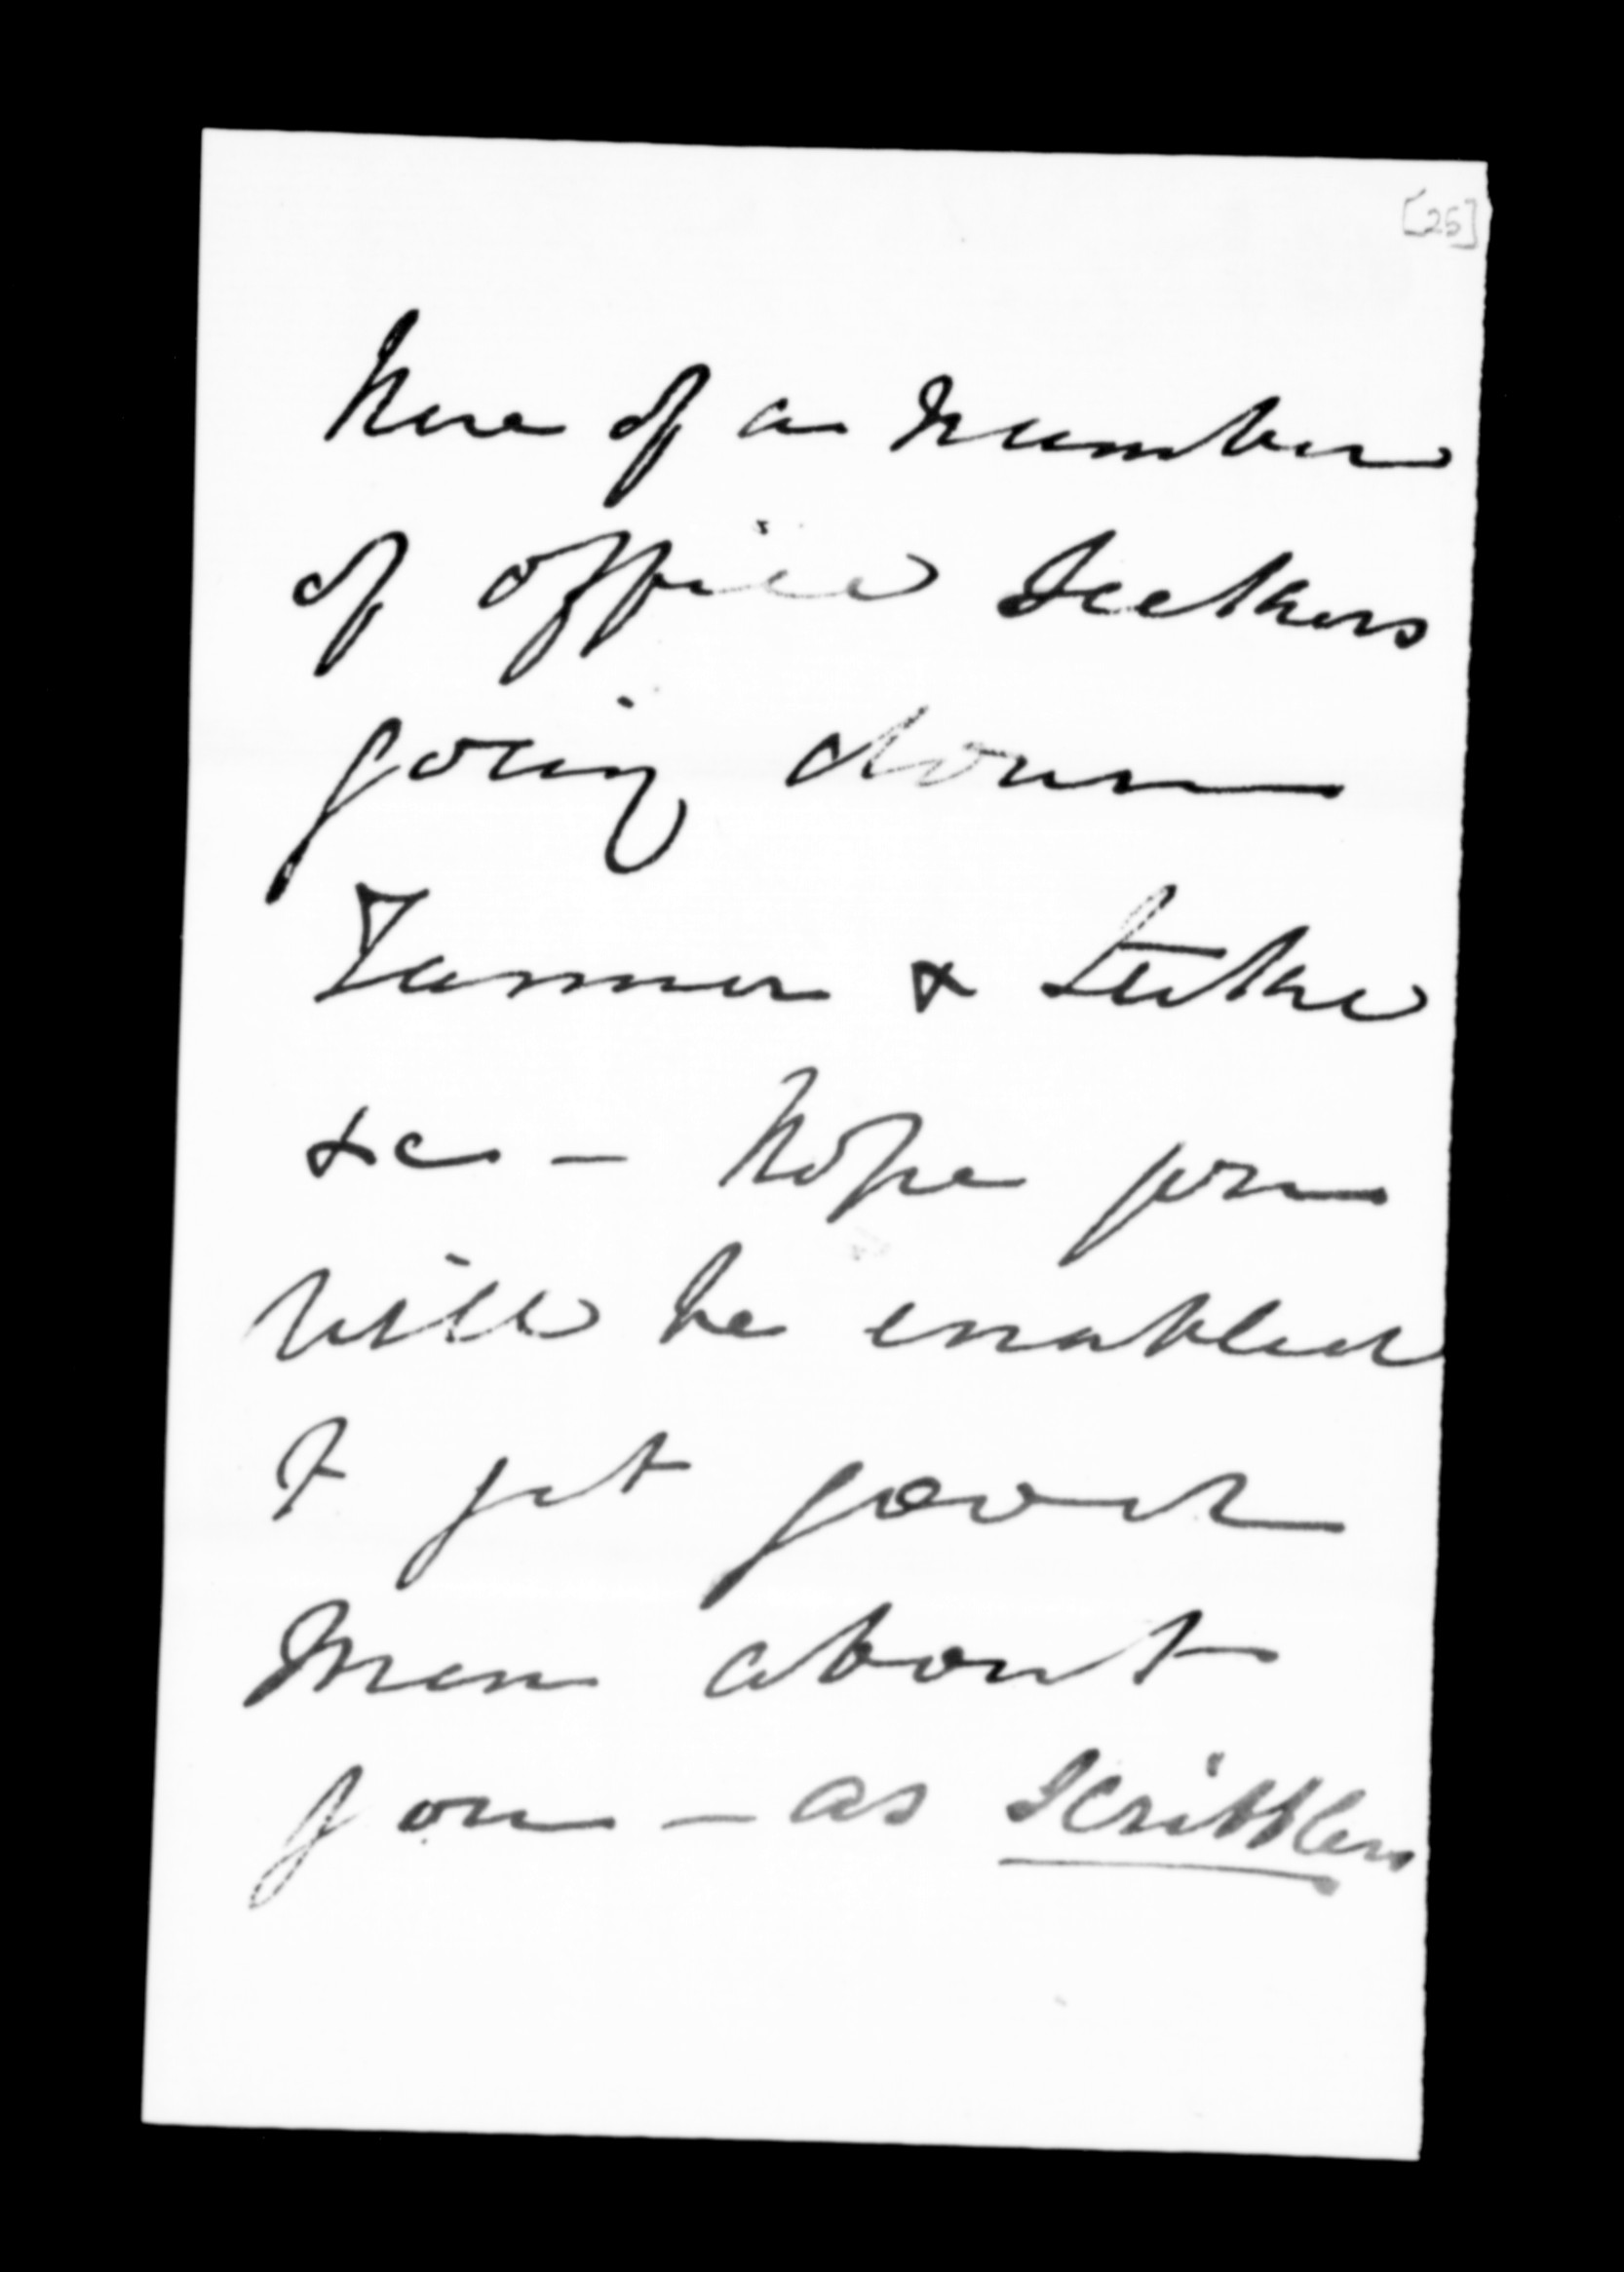 [25]
here of a number
of office Seekers
going down
Tanner & Luke
&c — hope you
will be enabled
to get good
men about
you — as Scribblers